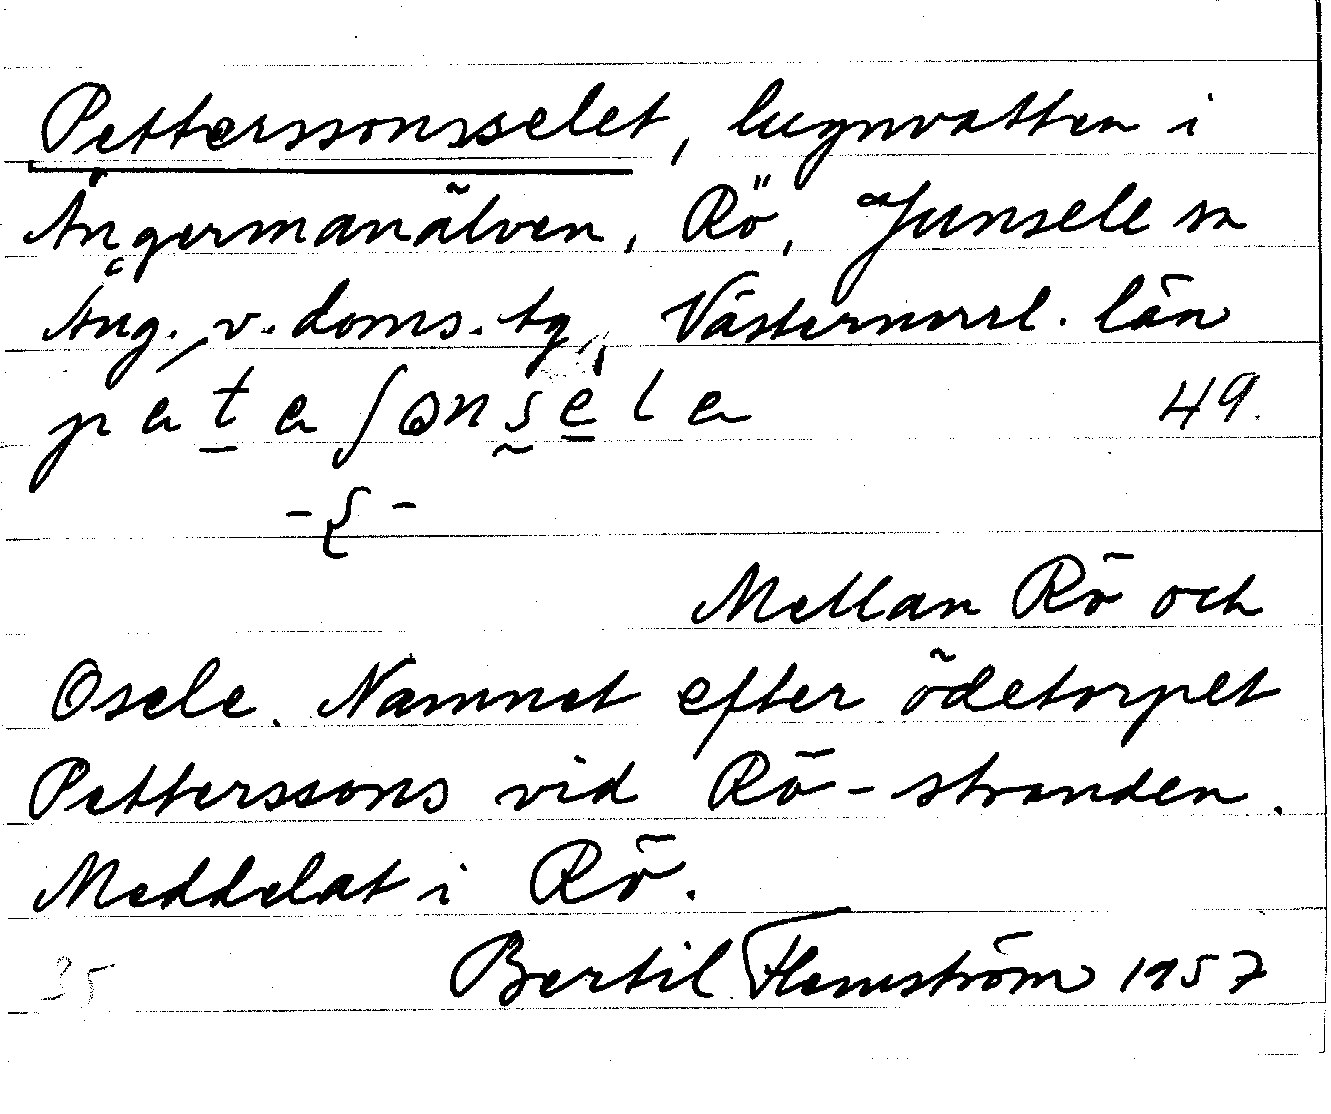 Petterssonsselet, lugnvatten i
Ångermanälven, Rö, Junsele sn
Ång. v. doms. tg, Västernorrl. län
petesonsele 49.
Mellan Rö och
Osele. Namnet efter ödetorpet
Petterssons vid Rö-stranden.
Meddelat i Rö.
35 Bertil Flemström 1957